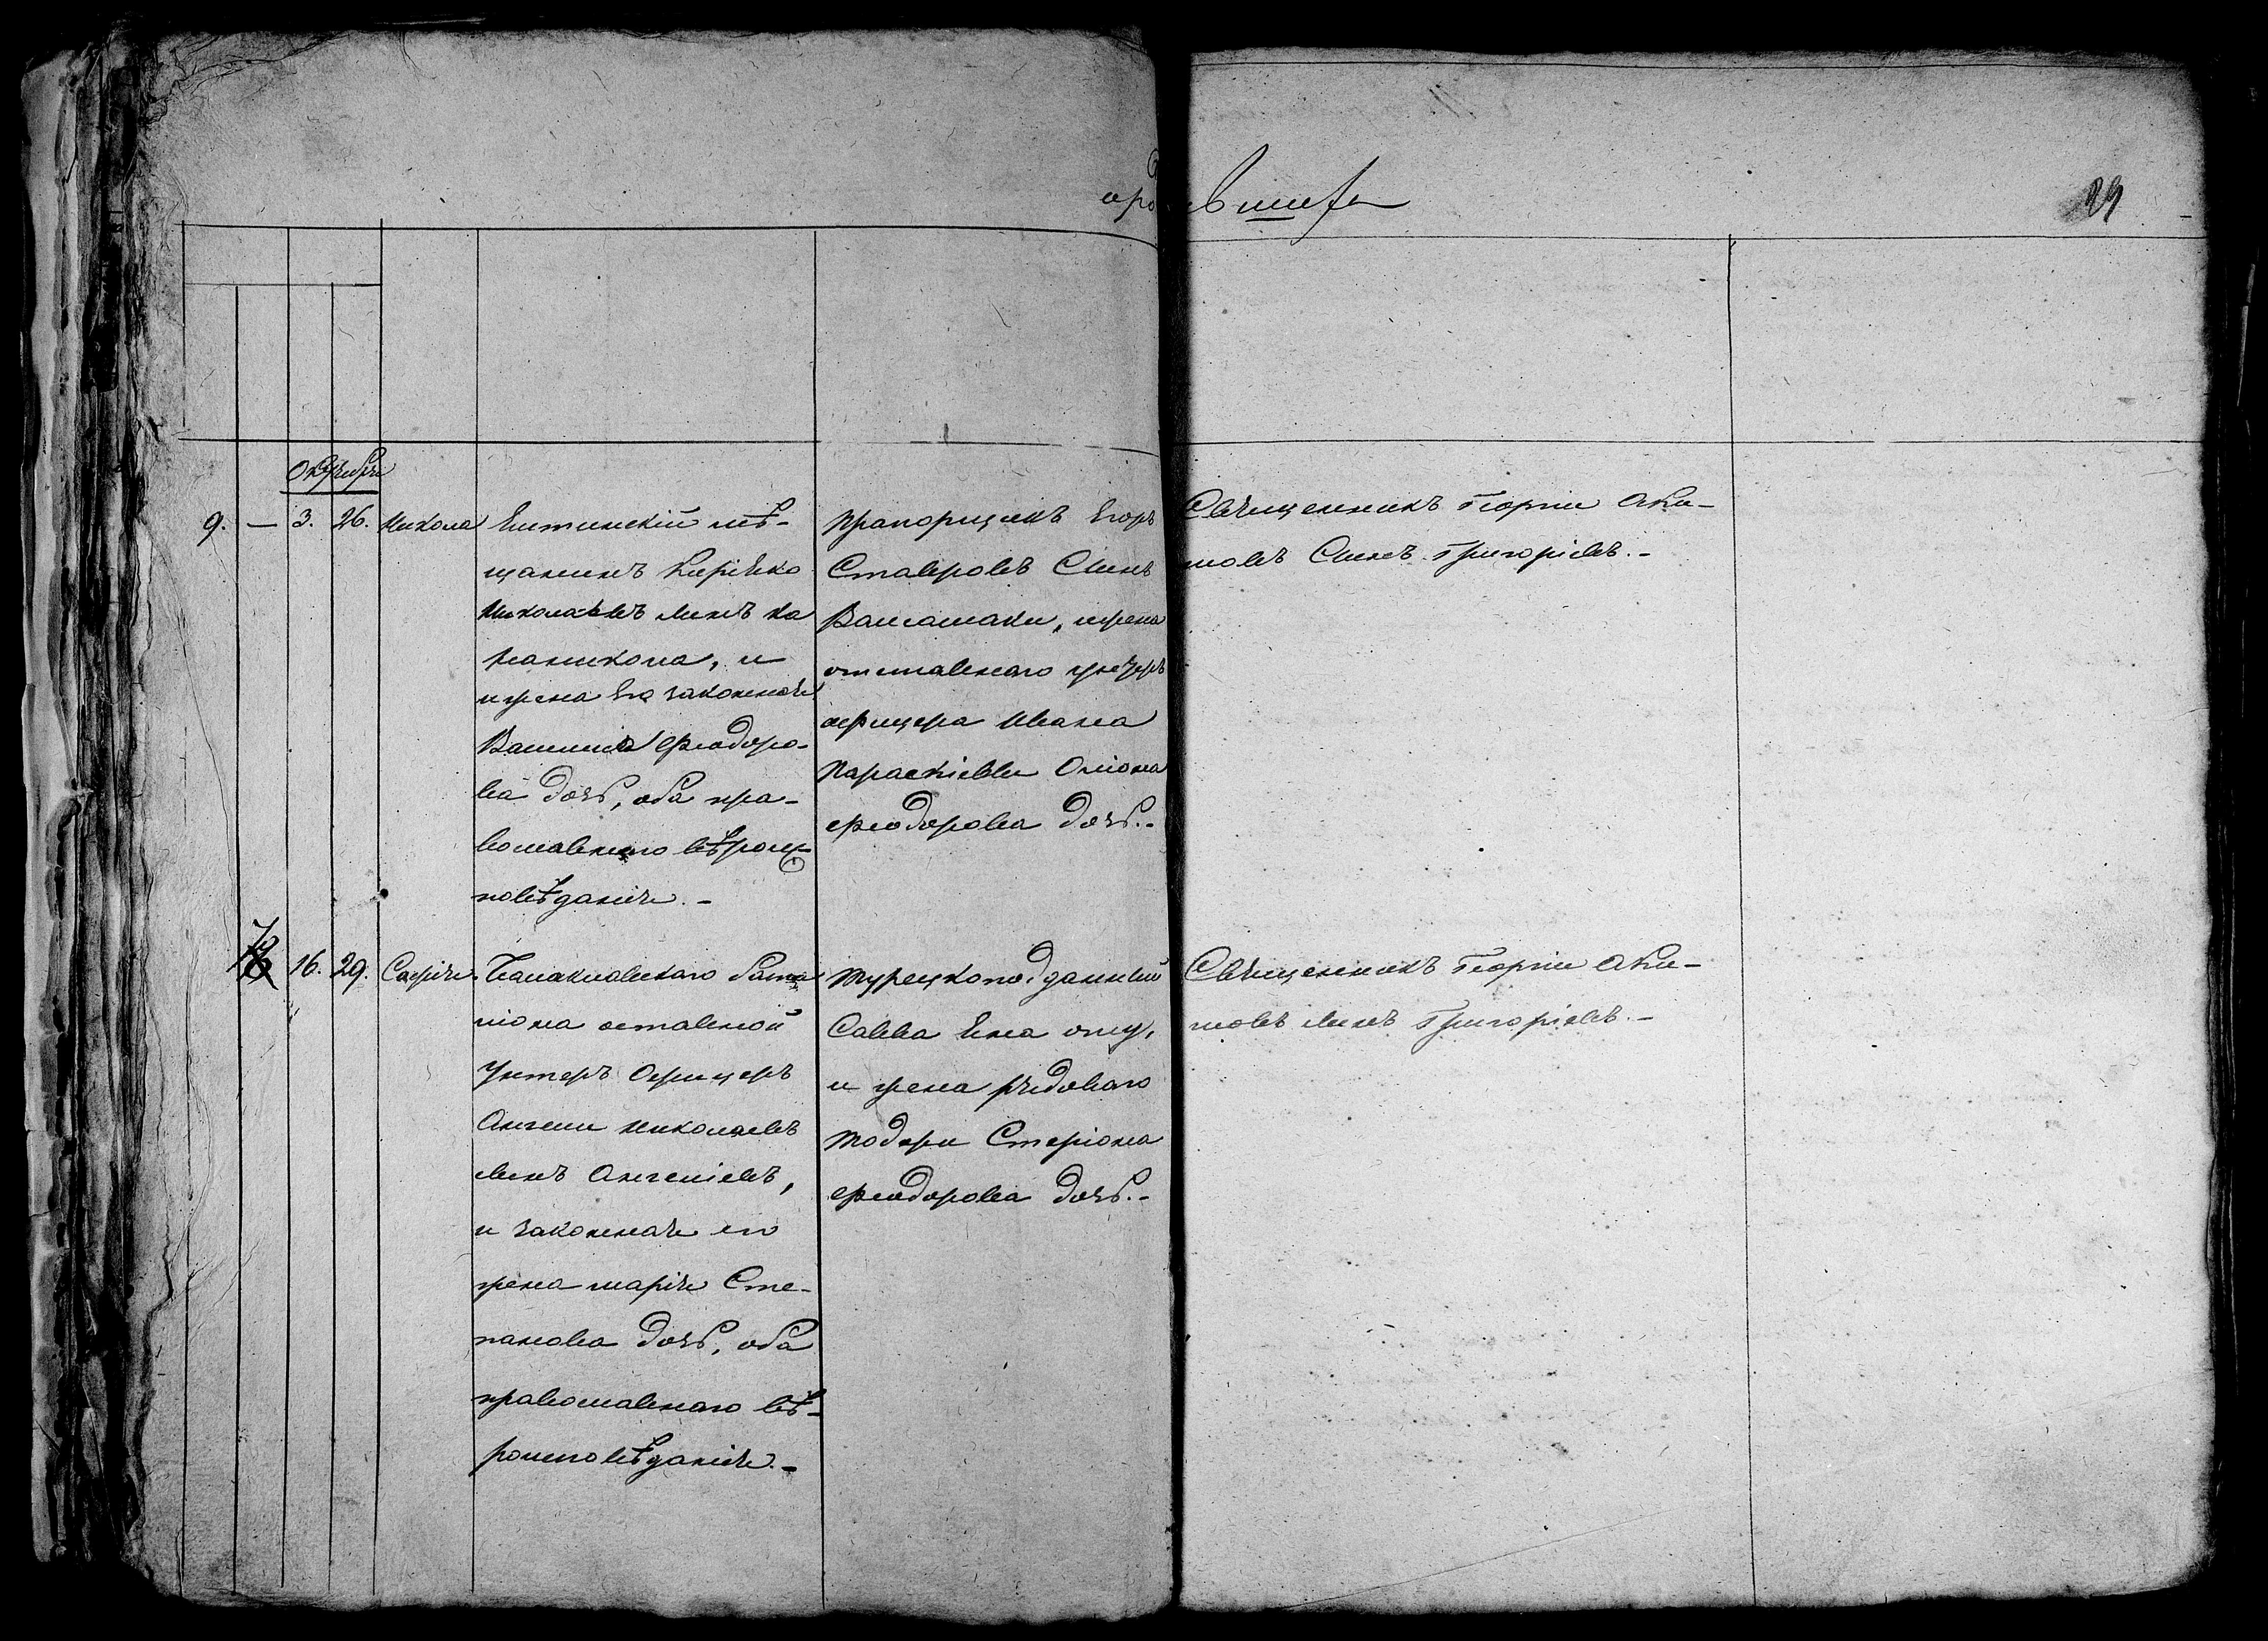 родившихся
29
Октября
9. — 3. 26. Никола
Ептинскій мѣ-
щанинъ Киріяко
Николаевъ сынъ Ка
и
жена Его законная
Василина Феодоро-
ва дочь, оба пра-
вославнаго вѣроис-
повѣданія. -
Прапорщикъ Егоръ
Ставровъ Сынъ
жена
отставнаго унтеръ
офицера Ивана
Параскіевы
Феодорова дочь. -
Священникъ Георгіи Аки-
мовъ Сынъ Григоріевъ. -
16. 29. Софія
Балаклавскаго бата
ліона оставной
Унтеръ Офицеръ
Ангели Николаевъ
сынъ Ангеліевъ,
и законная его
жена Марія Сте-
панова дочь, оба
православнаго вѣ-
роисповѣданія. -
Турецкоподданный
Савва
и жена рядоваго
Тодори Стеріона
Феодорова дочь. -
Священникъ Георгіи Аки-
мовъ сынъ Григоріевъ. -